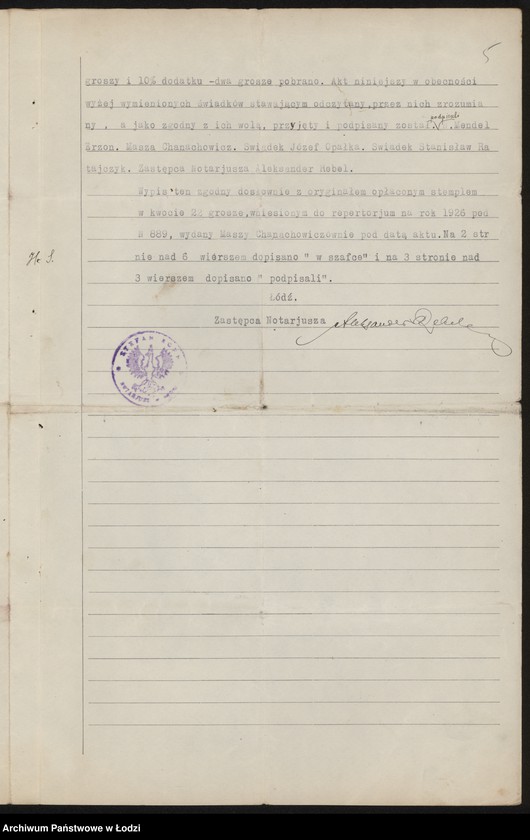 5
groszy i 10% dodatku -dwa grosze pobrano. Akt niniejszy w obecności
wyżej wymienionych świadków stawającym odczytany,przez nich zrozumia
podpisali
ny , a jako zgodny z ich wolą, przyjęty i podpisany został. Mendel
Erzon. Masza Chanachowicz. Świadek Józef Opałka. Świadek Stanisław Ra
tajczyk. Zastępca Notarjusza Aleksander Rebel.
Wypis ten zgodny dosłownie z oryginałem opłaconym stemplem
w kwocie 22 grosze,wniesionym do repertorjum na rok 1926 pod
№ 889, wydany Maszy Chanachowiczównie pod datą aktu.Na 2 str
nie nad 6 wierszem dopisano " w szafce" i na 3 stronie nad
3 wierszem dopisano " podpisali".
Łódź.
Zastępca Notarjusza Aleksander Rebel
STEFAN
NOTARJUSZ
Archiwum Państwowe w Łodzi